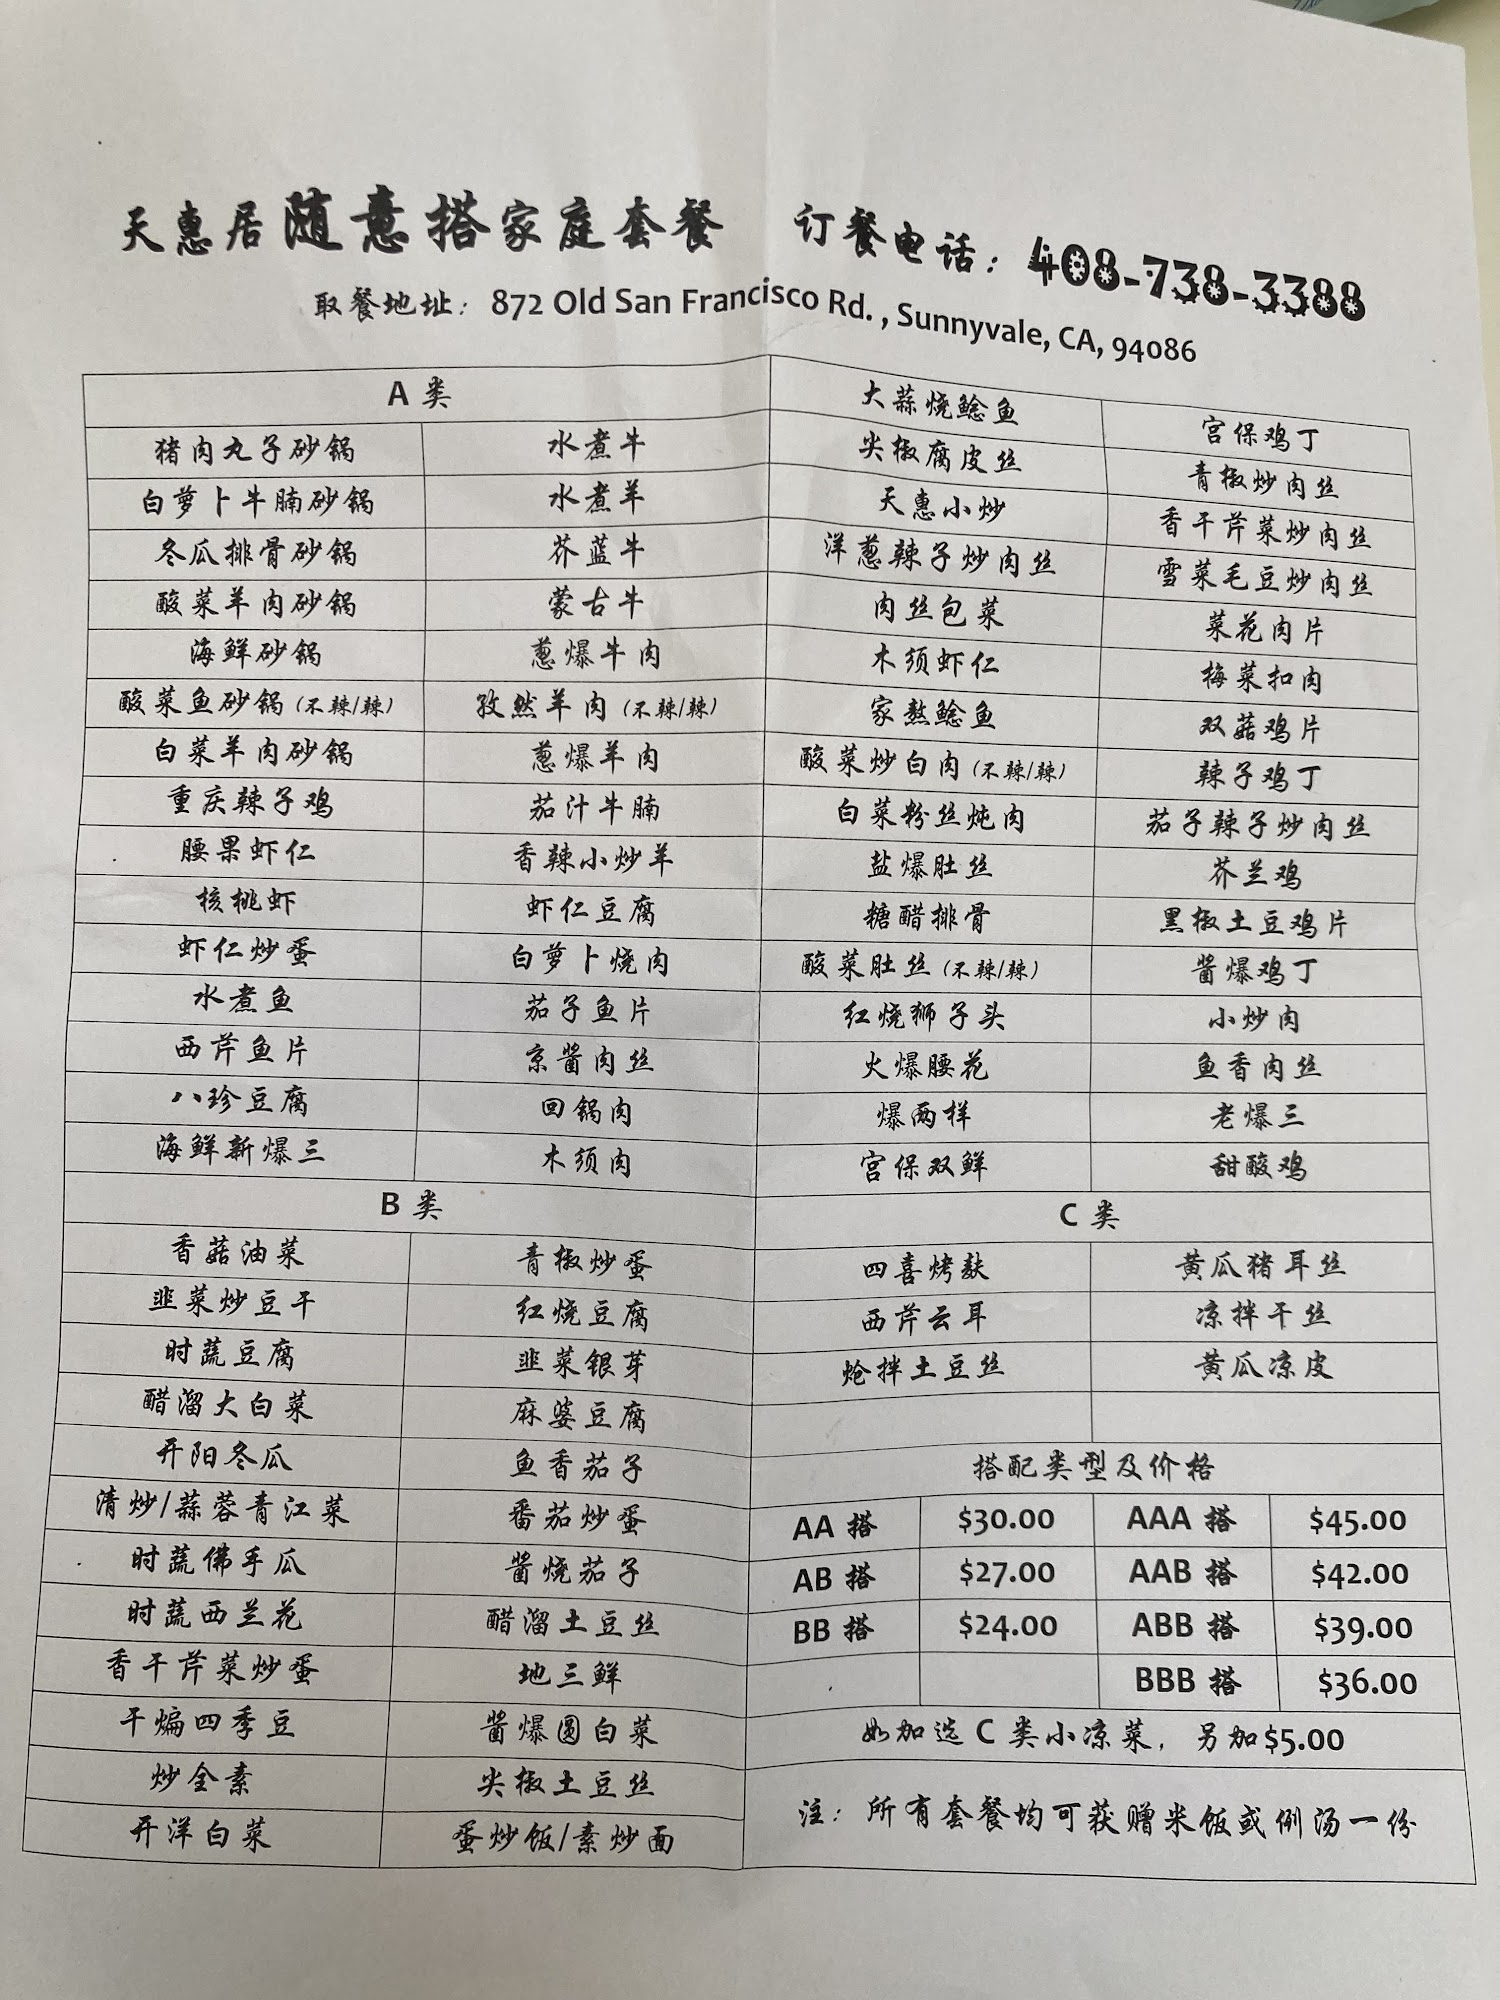 天惠居随意搭家庭套餐 订餐电话：408-738-3388
取餐地址：872 Old San Francisco Rd. , Sunnyvale, CA, 94086
A 类
猪肉丸子砂锅 水煮牛
白萝卜牛腩砂锅 水煮羊
冬瓜排骨砂锅 芥蓝牛
酸菜羊肉砂锅 蒙古牛
海鲜砂锅 葱爆牛肉
酸菜鱼砂锅（不辣/辣） 孜然羊肉（不辣/辣）
白菜羊肉砂锅 葱爆羊肉
重庆辣子鸡 茄汁牛腩
腰果虾仁 香辣小炒羊
核桃虾 虾仁豆腐
虾仁炒蛋 白萝卜烧肉
水煮鱼 茄子鱼片
西芹鱼片 京酱肉丝
八珍豆腐 回锅肉
海鲜新爆三 木须肉
大蒜烧鲶鱼 宫保鸡丁
尖椒腐皮丝 青椒炒肉丝
天惠小炒 香干芹菜炒肉丝
洋葱辣子炒肉丝 雪菜毛豆炒肉丝
肉丝包菜 菜花肉片
木须虾仁 梅菜扣肉
家熬鲶鱼 双菇鸡片
酸菜炒白肉（不辣/辣） 辣子鸡丁
白菜粉丝炖肉 茄子辣子炒肉丝
盐爆肚丝 芥兰鸡
糖醋排骨 黑椒土豆鸡片
酸菜肚丝（不辣/辣） 酱爆鸡丁
红烧狮子头 小炒肉
火爆腰花 鱼香肉丝
爆两样 老爆三
宫保双鲜 甜酸鸡
B 类
香菇油菜 青椒炒蛋
韭菜炒豆干 红烧豆腐
时蔬豆腐 韭菜银芽
醋溜大白菜 麻婆豆腐
开阳冬瓜 鱼香茄子
清炒/蒜蓉青江菜 番茄炒蛋
时蔬佛手瓜 酱烧茄子
时蔬西兰花 醋溜土豆丝
香干芹菜炒蛋 地三鲜
干煸四季豆 酱爆圆白菜
炒全素 尖椒土豆丝
开洋白菜 蛋炒饭/素炒面
C 类
四喜烤麸 黄瓜猪耳丝
西芹云耳 凉拌干丝
炝拌土豆丝 黄瓜凉皮
搭配类型及价格
AA 搭 $30.00 AAA 搭 $45.00
AB 搭 $27.00 AAB 搭 $42.00
BB 搭 $24.00 ABB 搭 $39.00
BBB 搭 $36.00
如加选 C 类小凉菜，另加$5.00
注：所有套餐均可获赠米饭或例汤一份